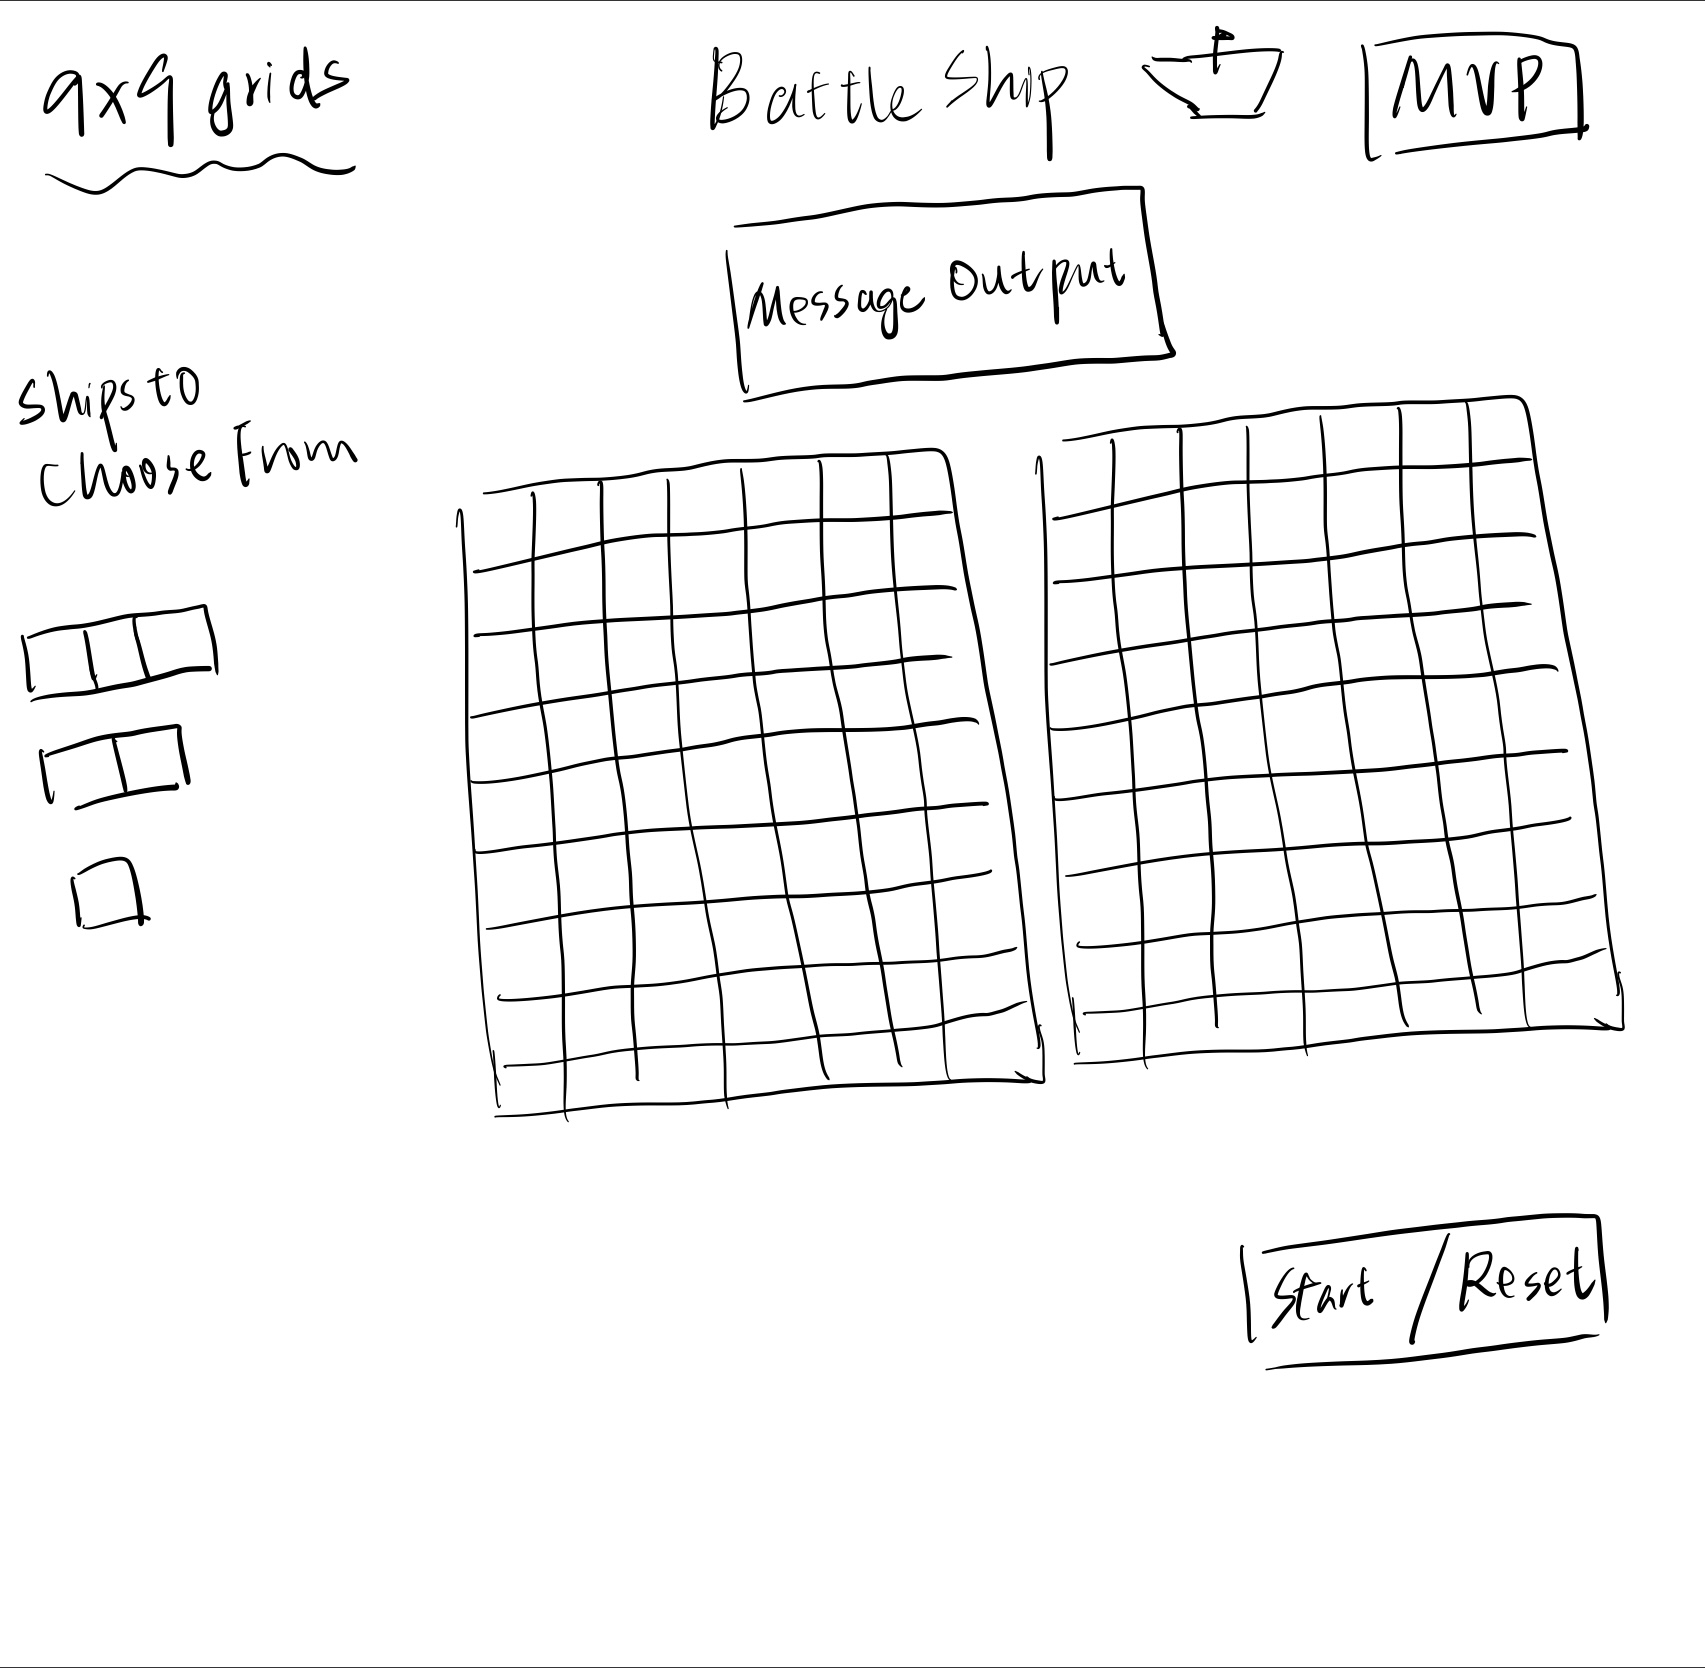 9x9 grids
Battle Ship
MVP
Message Output
Ships to
Choose From
Start / Reset